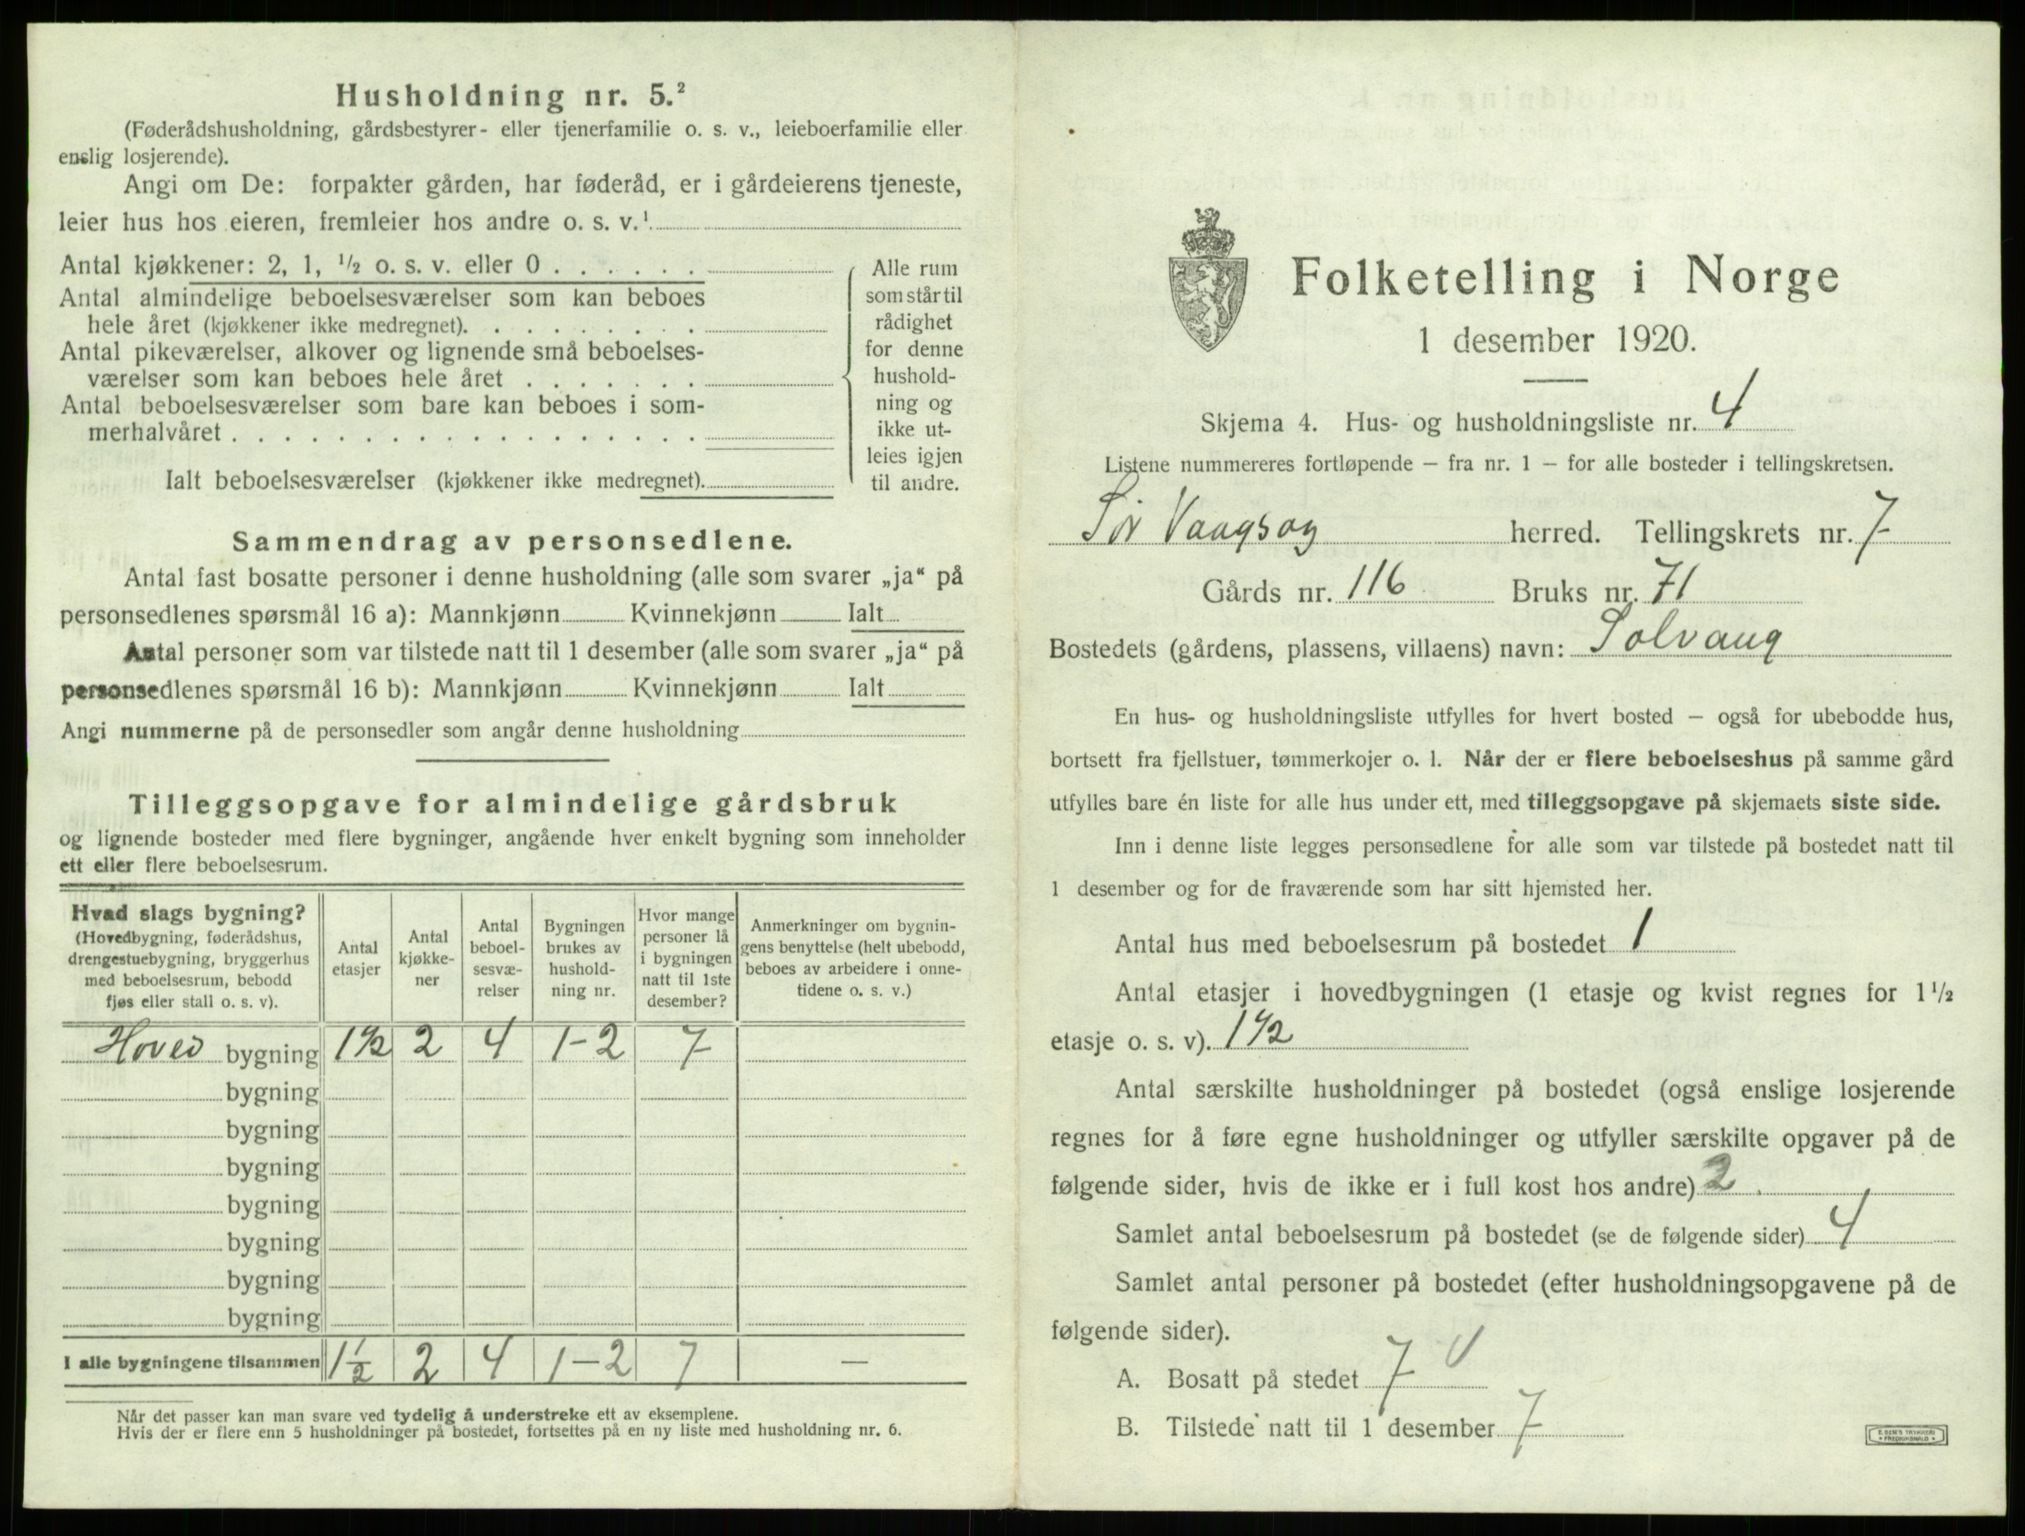 Husholdning nr. 5.²
(Føderådshusholdning, gårdsbestyrer- eller tjenerfamilie o. s. v., leieboerfamilie eller
enslig losjerende).
Angi om De: forpakter gården, har føderåd, er i gårdeierens tjeneste,
leier hus hos eieren, fremleier hos andre o. s. v.¹
Antal kjøkkener: 2, 1, ½ o. s. v. eller 0 . . . . . .
Antal almindelige beboelsesværelser som kan beboes
hele året (kjøkkener ikke medregnet). . . . . . . . .
Antal pikeværelser, alkover og lignende små beboelses-
værelser som kan beboes hele året . . . . . . .
Antal beboelsesværelser som bare kan beboes i som-
merhalvåret . . . . . . . . . . . . . . . . . .
Ialt beboelsesværelser (kjøkkener ikke medregnet).
Alle rum
som står til
rådighet
for denne
hushold-
ning og
ikke ut-
leies igjen
til andre.
Sammendrag av personsedlene.
Antal fast bosatte personer i denne husholdning (alle som svarer „ja“ på
personsedlenes spørsmål 16 a): Mannkjønn Kvinnekjønn Ialt
Antal personer som var tilstede natt til 1 desember (alle som svarer „ja“ på
personsedlenes spørsmål 16 b): Mannkjønn Kvinnekjønn Ialt
Angi nummerne på de personsedler som angår denne husholdning
Tilleggsopgave for almindelige gårdsbruk
og lignende bosteder med flere bygninger, angående hver enkelt bygning som inneholder
ett eller flere beboelsesrum.
Hvad slags bygning?
(Hovedbygning, føderådshus,
drengestuebygning, bryggerhus
med beboelsesrum, bebodd
fjøs eller stall o. s. v).
Antal
etasjer
Antal
kjøkke-
ner
Antal
beboel-
sesvæ-
relser
Bygningen
brukes av
hushold-
ning nr.
Hvor mange
personer lå
i bygningen
natt til 1ste
desember?
Anmerkninger om bygnin-
gens benyttelse (helt ubebodd,
beboes av arbeidere i onne-
tidene o. s. v.)
Hoved bygning 1½ 2 4 1-2 7
bygning
bygning
bygning
bygning
bygning
bygning
bygning
I alle bygningene tilsammen 1½ 2 4 1-2 7 —
Når det passer kan man svare ved tydelig å understreke ett av eksemplene.
Hvis der er flere enn 5 husholdninger på bostedet, fortsettes på en ny liste med husholdning nr. 6.
Folketelling i Norge
1 desember 1920.
Skjema 4. Hus- og husholdningsliste nr. 4
Listene nummereres fortløpende – fra nr. 1 – for alle bosteder i tellingskretsen.
Sör Vaagsoy herred. Tellingskrets nr. 7
Gårds nr. 116 Bruks nr. 71
Bostedets (gårdens, plassens, villaens) navn: Solvang
En hus- og husholdningsliste utfylles for hvert bosted – også for ubebodde hus,
bortsett fra fjellstuer, tømmerkojer o. l. Når der er flere beboelseshus på samme gård
utfylles bare én liste for alle hus under ett, med tilleggsopgave på skjemaets siste side.
Inn i denne liste legges personsedlene for alle som var tilstede på bostedet natt til
1 desember og for de fraværende som har sitt hjemsted her.
Antal hus med beboelsesrum på bostedet 1
Antal etasjer i hovedbygningen (1 etasje og kvist regnes for 1½
etasje o. s. v). 1½
Antal særskilte husholdninger på bostedet (også enslige losjerende
regnes for å føre egne husholdninger og utfyller særskilte opgaver på de
følgende sider, hvis de ikke er i full kost hos andre) 2
Samlet antal beboelsesrum på bostedet (se de følgende sider) 4
Samlet antal personer på bostedet (efter husholdningsopgavene på de
følgende sider).
A. Bosatt på stedet 7
B. Tilstede natt til 1 desember 7